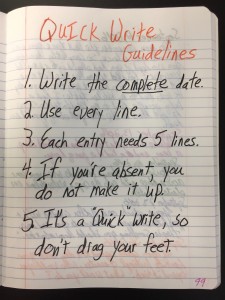 QUICK Write
Guidelines
1. Write the complete date.
2. Use every line.
3. Each entry needs 5 lines.
4. If you're absent, you
do not make it up.
5. It's a "Quick" Write, so
don't drag your feet.
99